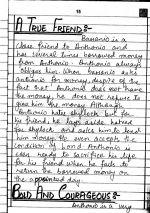 15
A TRUE FRIEND:-
Bassanio is a
close friend to Anthonio and
has several times borrowed money
from Anthonio. Anthonio always
obliges him. When Bassanio asks
Antonio for money, despite of the
fact that Anthonio does not have
the money, he does not refuse to
give him the money. Although
Anthonio hates Shylock but for
his friend he lays aside hatred
for Shylock and asks him to lend
him money. He even accepts the
condition of bond. Anthonio is
even ready to sacrifice his life
for his friend when he fails to
return the borrowed money on
the appointed day.
BOLD AND COURAGEOUS:-
Anthonio is a very